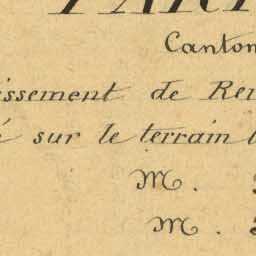 Canton
issement de Re
é sur le terrain l
M.
M.